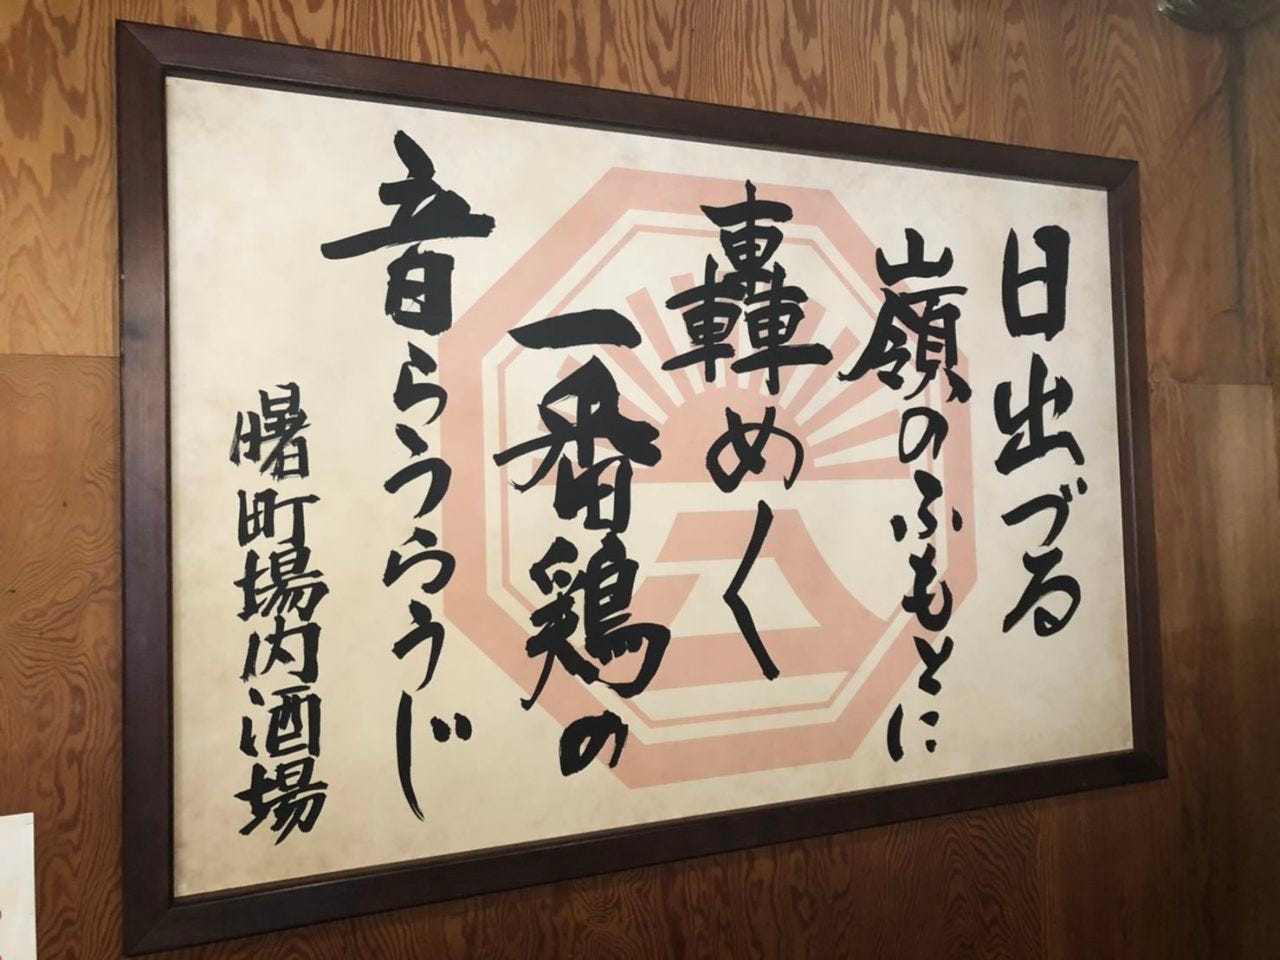 日出づる
嶺のふもとに
轟めく
一番鶏の
音らうらうじ
曙町場内酒場